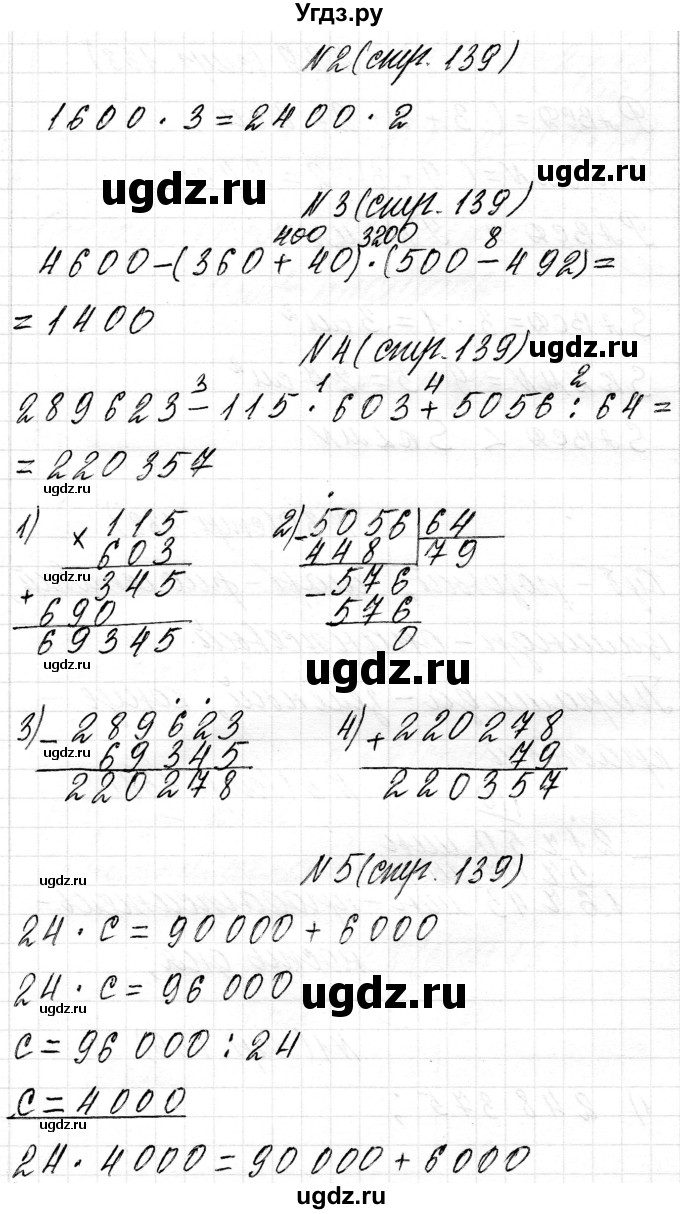 Угдз.ру
N2 (стр. 139)
1600 · 3 = 2400 · 2
ugdz.ru
ugdz.ru
N3 (стр. 139)
400 3200 8
4600 – (360 + 40) · (500 – 492) =
= 1400
N4 (стр. 139)
ugdz.ru
3 1 4 2
289623 – 115 · 603 + 5056 : 64 =
= 220357
ugdz.ru
1) × 115
603
ugdz.ru
+ 345
690
69345
ugdz.ru
2) – 5056 | 64
448 79
– 576
576
0
ugdz.ru
3) – 289623
69345
220278
ugdz.ru
4) + 220278
79
220357
N5 (стр. 139)
ugdz.ru
24 · c = 90 000 + 6000
24 · c = 96 000
ugdz.ru
ugdz.ru
c = 96 000 : 24
c = 4000
ugdz.ru
24 · 4000 = 90 000 + 6000
ugdz.ru